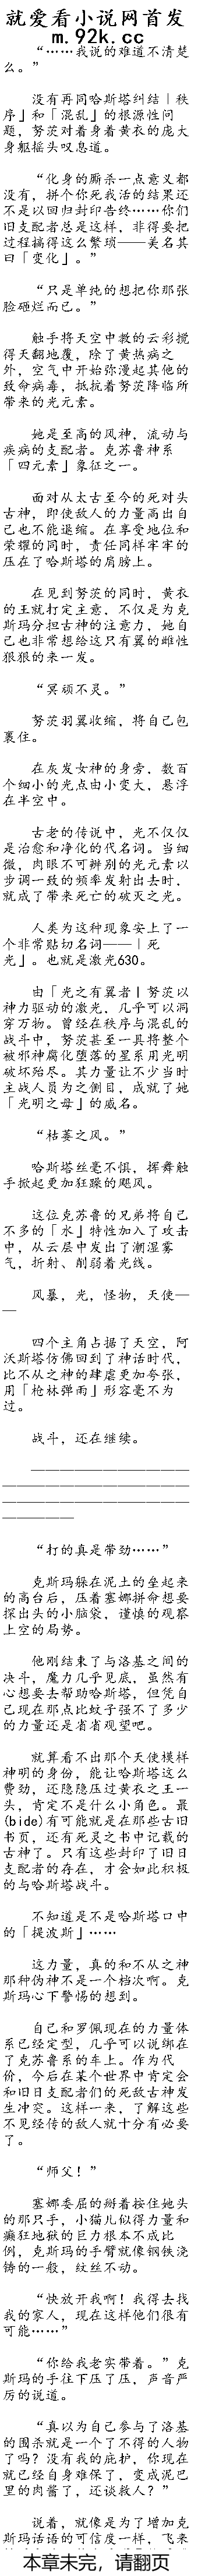 就爱看小说网首发
m.92k.cc
“……我说的难道不清楚
么。”
没有再同哈斯塔纠结「秩
序」和「混乱」的根源性问
题，努茨对着身着黄衣的庞大
身躯摇头叹息道。
“化身的厮杀一点意义都
没有，拼个你死我活的结果还
不是以回归封印告终……你们
旧支配者总是这样，非得要把
过程搞得这么繁琐——美名其
曰「变化」。”
“只是单纯的想把你那张
脸砸烂而已。”
触手将天空中教的云彩搅
得天翻地覆，除了黄热病之
外，空气中开始弥漫起其他的
致命病毒，抵抗着努茨降临所
带来的光元素。
她是至高的风神，流动与
疾病的支配者。克苏鲁神系
「四元素」象征之一。
面对从太古至今的死对头
古神，即使敌人的力量高出自
己也不能退缩。在享受地位和
荣耀的同时，责任同样牢牢的
压在了哈斯塔的肩膀上。
在见到努茨的同时，黄衣
的王就打定主意，不仅是为克
斯玛分担古神的注意力，她自
己也非常想给这只有翼的雌性
狠狠的来一发。
“冥顽不灵。”
努茨羽翼收缩，将自己包
裹住。
在灰发女神的身旁，数百
个细小的光点由小变大，悬浮
在半空中。
古老的传说中，光不仅仅
是治愈和净化的代名词。当细
微，肉眼不可辨别的光元素以
步调一致的频率发射出去时，
就成了带来死亡的破灭之光。
人类为这种现象安上了一
个非常贴切名词——「死
光」。也就是激光630。
由「光之有翼者」努茨以
神力驱动的激光，几乎可以洞
穿万物。曾经在秩序与混乱的
战斗中，努茨甚至一具将整个
被邪神腐化堕落的星系用光明
破坏殆尽。其力量让不少当时
主战人员为之侧目，成就了她
「光明之母」的威名。
“枯萎之风。”
哈斯塔丝毫不惧，挥舞触
手掀起更加狂躁的飓风。
这位克苏鲁的兄弟将自己
不多的「水」特性加入了攻击
中，从云层中发出了潮湿雾
气，折射、削弱着光线。
风暴，光，怪物，天使—
—
四个主角占据了天空，阿
沃斯塔仿佛回到了神话时代，
比不从之神的肆虐更加夸张，
用「枪林弹雨」形容毫不为
过。
战斗，还在继续。
———————————
—————————————
—————————————
—————
“打的真是带劲……”
克斯玛躲在泥土的垒起来
的高台后，压着塞娜拼命想要
探出头的小脑袋，谨慎的观察
上空的局势。
他刚结束了与洛基之间的
决斗，魔力几乎见底，虽然有
心想要去帮助哈斯塔，但凭自
己现在那点比蚊子强不了多少
的力量还是省省观望吧。
就算看不出那个天使模样
神明的身份，能让哈斯塔这么
费劲，还隐隐压过黄衣之王一
头，肯定不是什么小角色。最
(bide)有可能就是在那些古旧
书页，还有死灵之书中记载的
古神了。只有这些封印了旧日
支配者的存在，才会如此积极
的与哈斯塔战斗。
不知道是不是哈斯塔口中
的「提波斯」……
这力量，真的和不从之神
那种伪神不是一个档次啊。克
斯玛心下警惕的想到。
自己和罗佩现在的力量体
系已经定型，几乎可以说绑在
了克苏鲁系的车上。作为代
价，今后在某个世界中肯定会
和旧日支配者们的死敌古神发
生冲突。这样一来，了解这些
不见经传的敌人就十分有必要
了。
“师父！”
塞娜委屈的掰着按住她头
的那只手，小猫儿似得力量和
癫狂地狱的巨力根本不成比
例，克斯玛的手臂就像钢铁浇
铸的一般，纹丝不动。
“快放开我啊！我得去找
我的家人，现在这样他们很有
可能……”
“你给我老实带着。”克
斯玛的手往下压了压，声音严
厉的说道。
“真以为自己参与了洛基
的围杀就是一个了不得的人物
了吗？没有我的庇护，你现在
就已经自身难保了，变成泥巴
里的肉酱了，还谈救人？”
说着，就像是为了增加克
斯玛话语的可信度一样，飞来
本章未完，请翻页